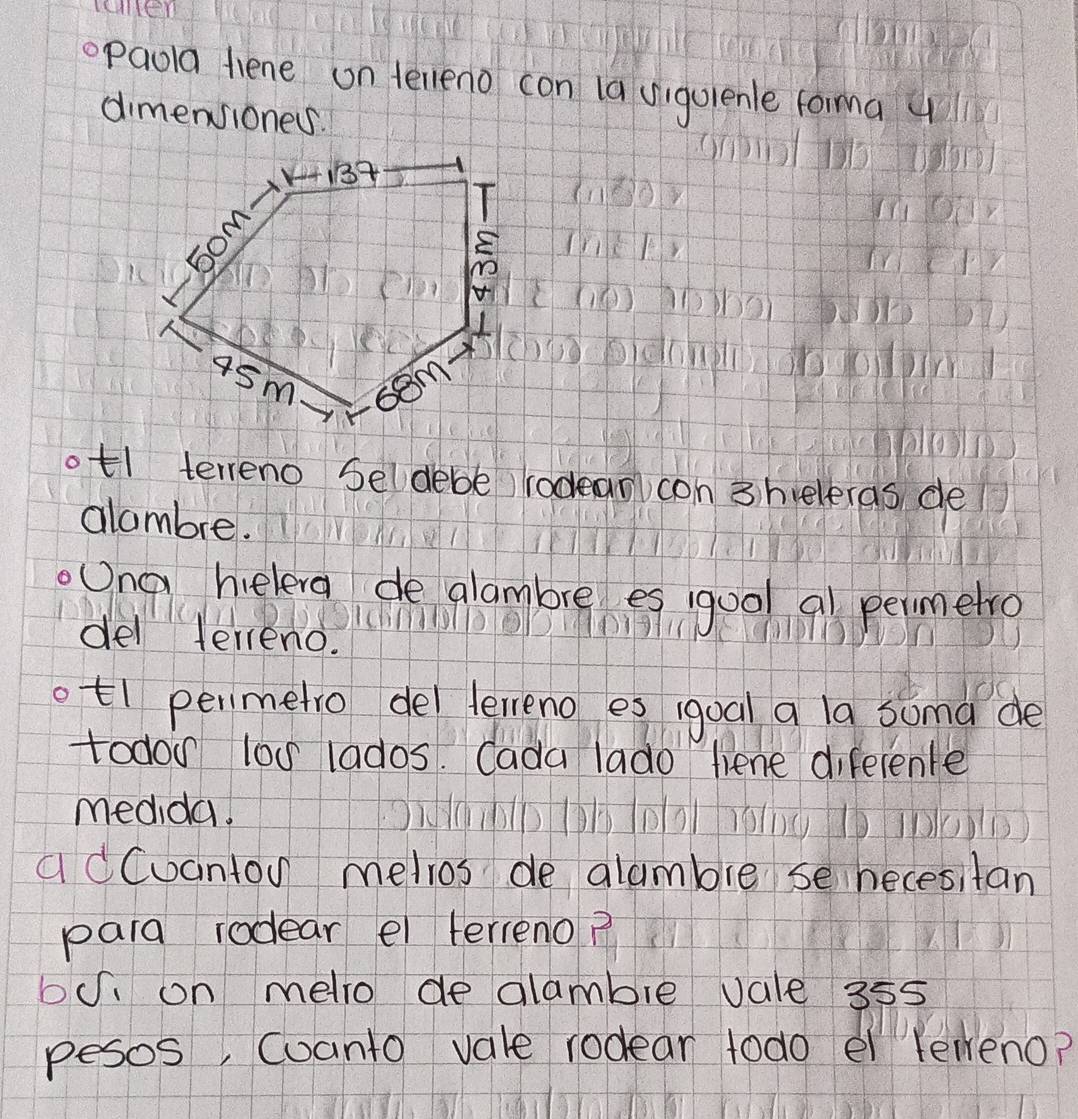 Taller
Paola tiene un terreno con la siguiente forma y
dimensiones.
137
50m
43m
45m
68m
El terreno se debe rodear con 3 hieleras de
alambre.
Una hielera de alambre es igual al perimetro
del terreno.
El perimetro del terreno es igual a la suma de
todos los lados. Cada lado tiene diferente
medida.
a ¿Cuantos metros de alambre se necesitan
para rodear el terreno?
b Si un metro de alambre vale 355
pesos, cuanto vale rodear todo el terreno?